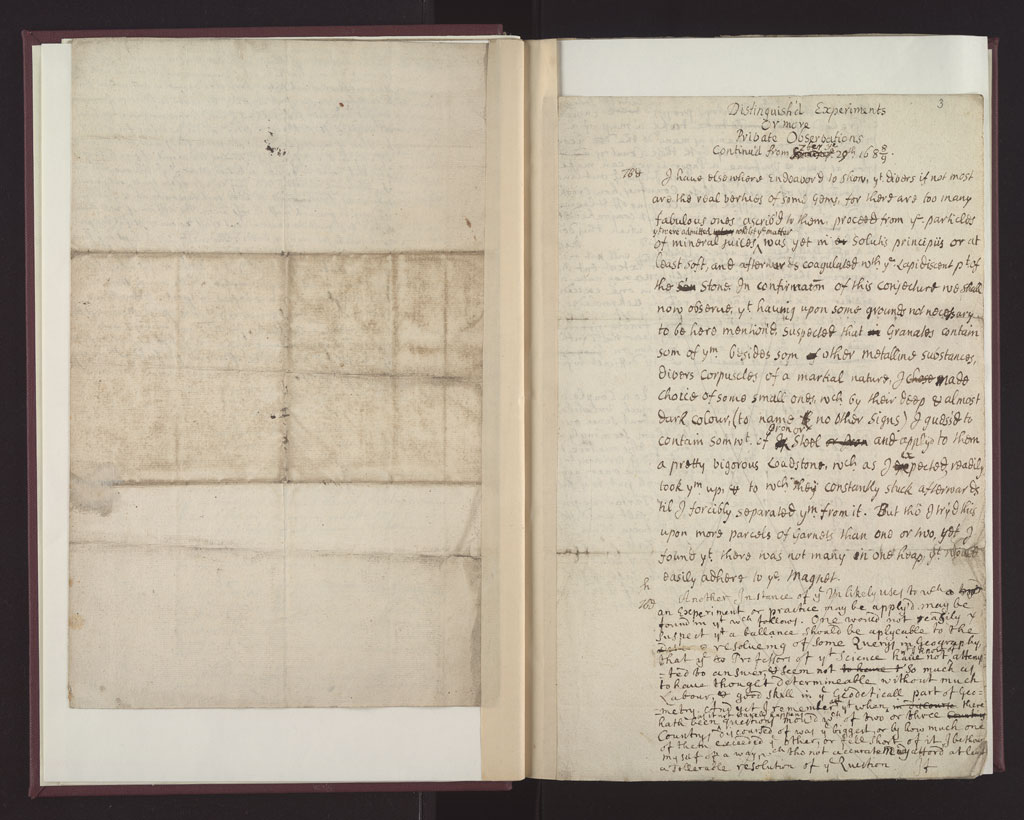 3
Distinguish'd Experiments
Or more
Private Observations
Continu'd from 29th 168 8/9.
I have elsewhere Endeavord to show, yt divers if not most
are the real vertues of some Gems, for there are too many
fabulous ones ascrib'd to them proceed from ye particles
yt were admitted whilst ye matter
of mineral juices, was yet in or Solutis principiis or at
least, soft, and afterwards coagulated wth ye Lapidiscent pt of
the Stone. In confirmation of this conjecture we shall
now observe, yt having upon some grounds not necessary
to be here mention'd, suspected that in Granates contain
som of ym besides som of other metalline substances,
divers corpuscles of a martial nature, I chose made
choice of some small ones, wch by their deep & almost
dark colour, (to name no other signs) I guess'd to
Iron or
contain somwt. of Steel or Iron and apply'd to them
a pretty vigorous Loadstone, wch as I expected, readily
took ym up, & to wch they constantly stuck afterwards
til I forcibly separated ym from it. But tho I try'd this
upon more parcels of Garnets than one or two, yet I
found yt. there was not many in one heap, yt would
easily adhere to ye. Magnet.
Another Instance of ye Unlikely uses to wch a
an Experiment or practice may be apply'd may be
found in yt wch follows. One would not easily
suspect yt a ballance should be aplyeable to the
resolveing of some Querys in Geography
that ye Professors of yt Science have not attemp
-ted to answer, & seem not to have so much as
to have thought determineable without much
Labour, & good skill in ye Geodeticall part of Geo-
metry. And yet I remember yt when in discourse there
hath been question mov'd wch of two or three Country
Countrys discoursed of was ye biggest, or by how much one
of them exceeded ye other, or fell short of it I bethought
my self of a way, wch tho not accurate may afford at least
a Tollerable resolution of ye Question If